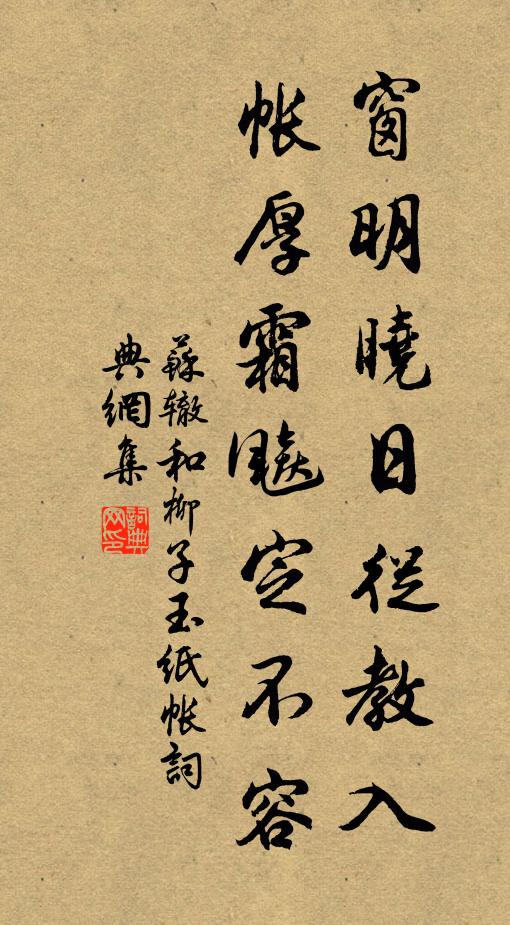 窗明曉日從教入
帳厚霜飈定不容
蘇轍和柳子玉紙帳詞
典網集
詞典網印